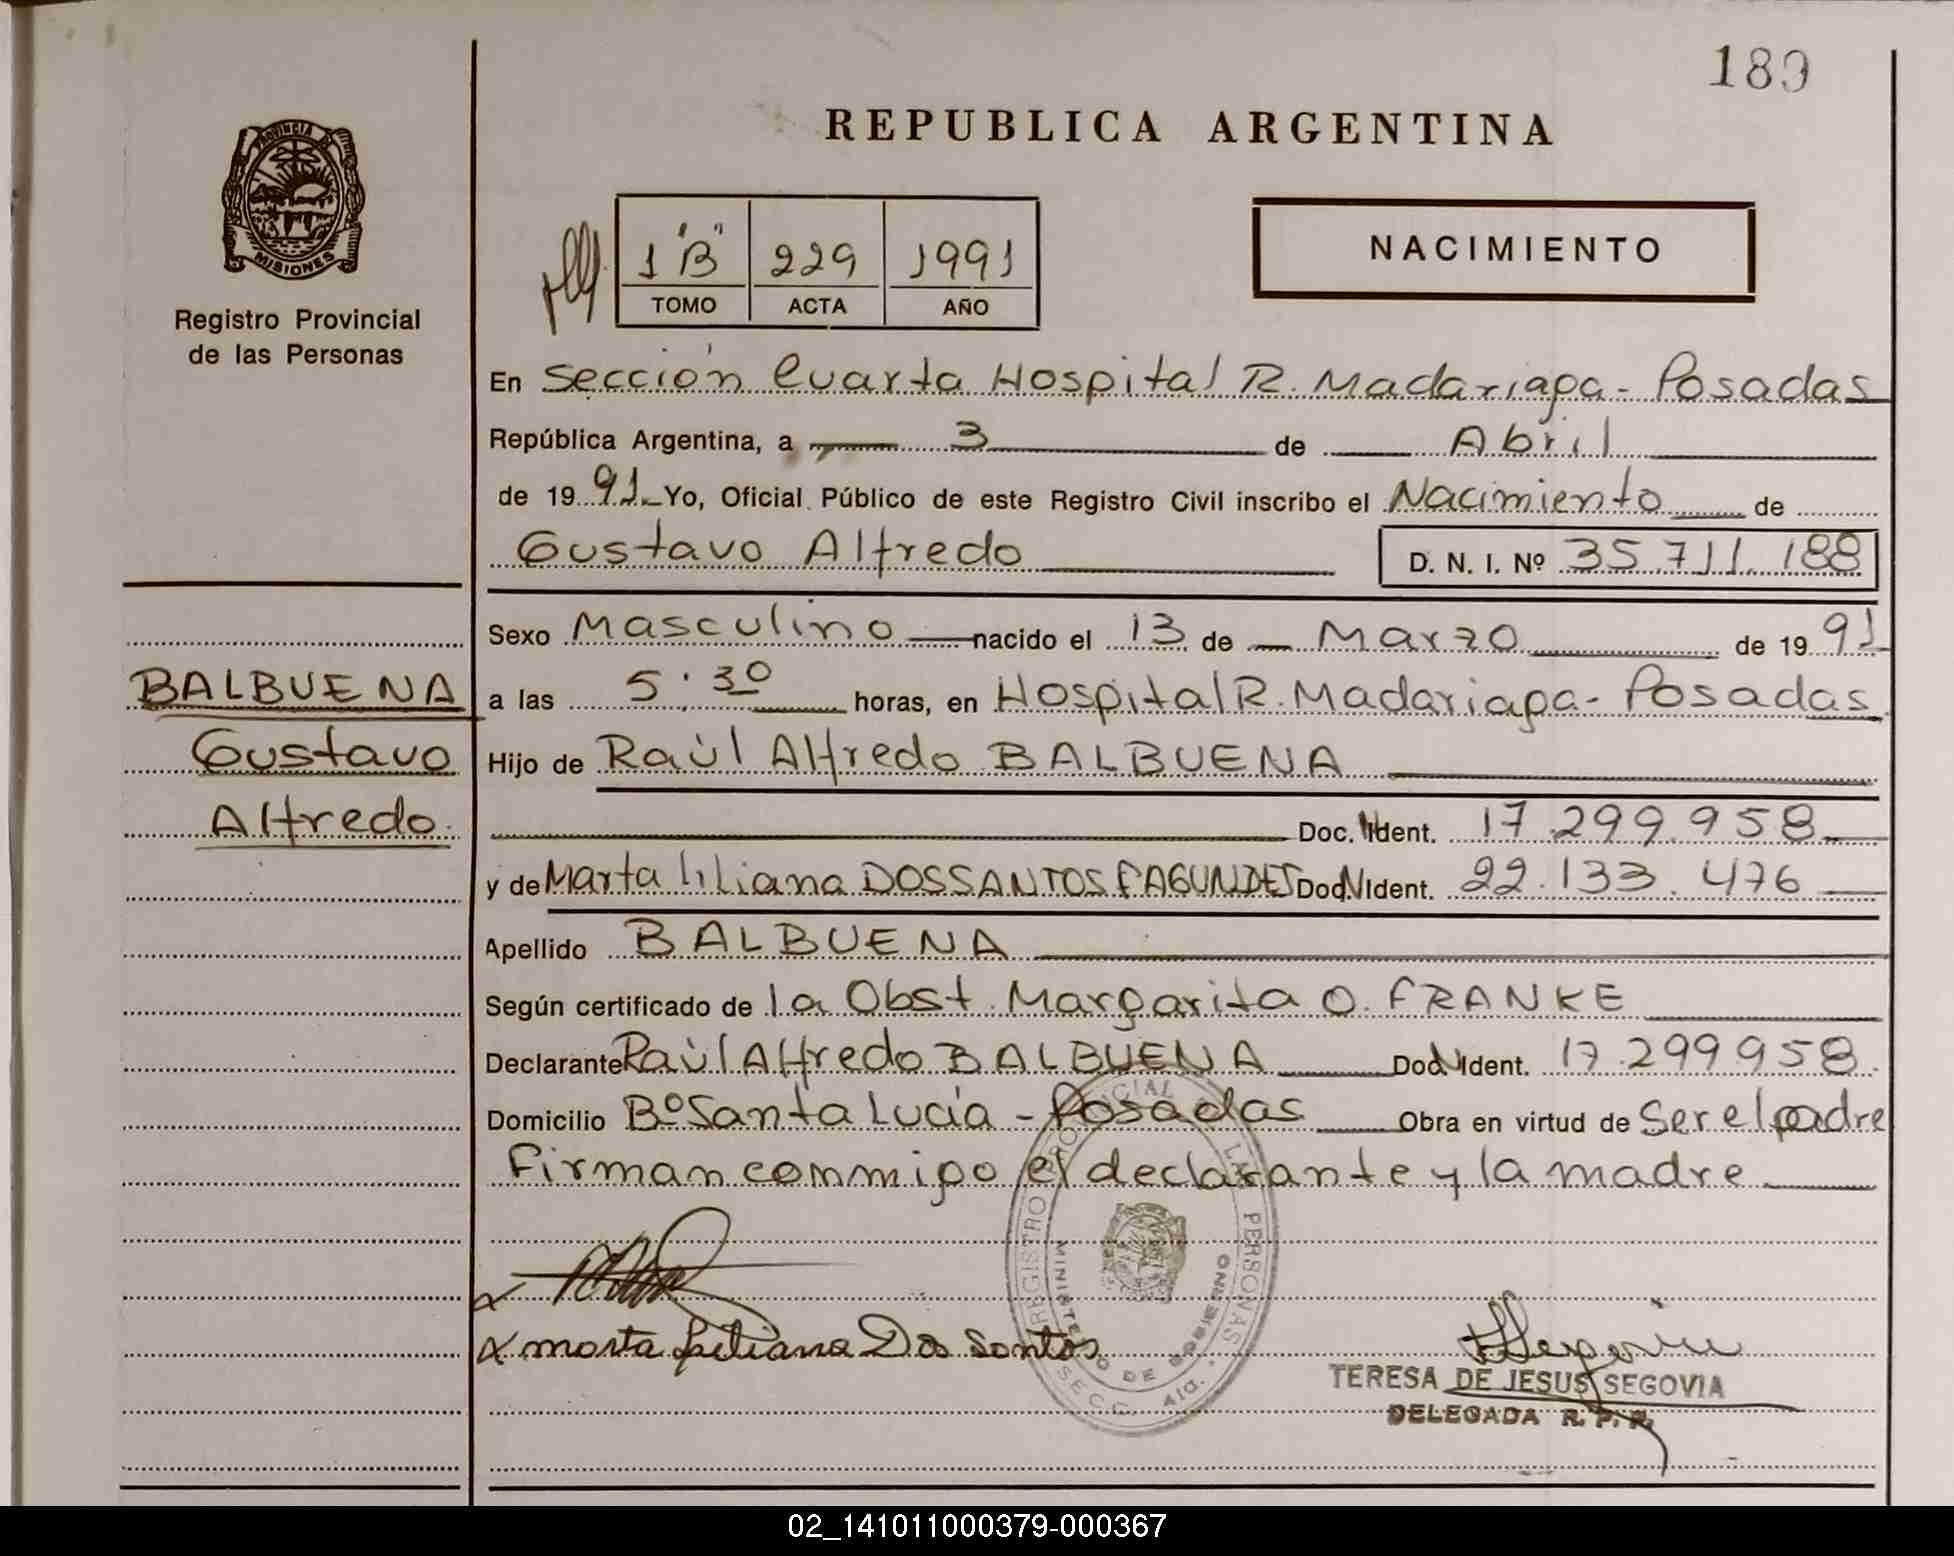 189
REPUBLICA ARGENTINA
PROVINCIA DE
MISIONES
Registro Provincial
de las Personas
1 "B" 229 1991
TOMO ACTA AÑO
NACIMIENTO
En Sección Cuarta Hospital R. Madariaga - Posadas
República Argentina, a 3 de Abril
de 1991 Yo, Oficial Público de este Registro Civil inscribo el Nacimiento de
Gustavo Alfredo D. N. I. Nº 35.711.188
Sexo Masculino nacido el 13 de Marzo de 1991
BALBUENA
Gustavo
Alfredo
a las 5:30 horas, en Hospital R. Madariaga - Posadas
Hijo de Raúl Alfredo BALBUENA
Doc. Ident. 17.299.958
y de Marta Liliana DOSSANTOS FAGUNDES Doc. Ident. 22.133.476
Apellido BALBUENA
Según certificado de la Obst. Margarita O. FRANKE
Declarante Raúl Alfredo BALBUENA Doc. Ident. 17.299958
Domicilio Bº Santa Lucia - Posadas Obra en virtud de Ser el padre
Firman conmigo el declarante y la madre
REGISTRO PROVINCIAL LAS PERSONAS
MINISTERIO DE GOBIERNO
SECC. 4ta.
marta Liliana Dos Santos
TERESA DE JESUS SEGOVIA
DELEGADA R. P. P.
02_141011000379-000367